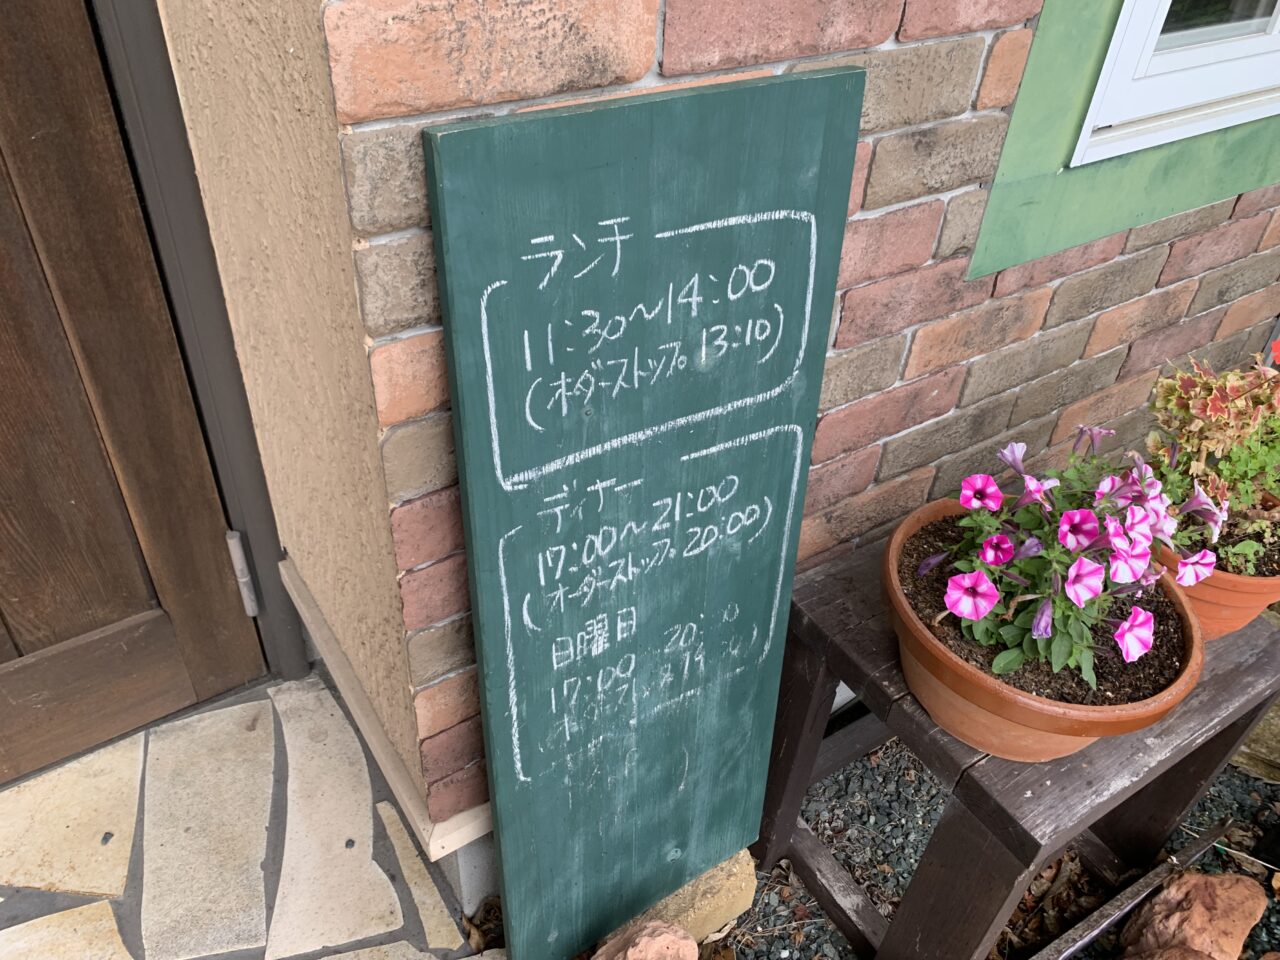 ランチ
11:30〜14:00
(オーダーストップ 13:10)
ディナー
17:00〜21:00
(オーダーストップ 20:00)
日曜日
17:00 20: